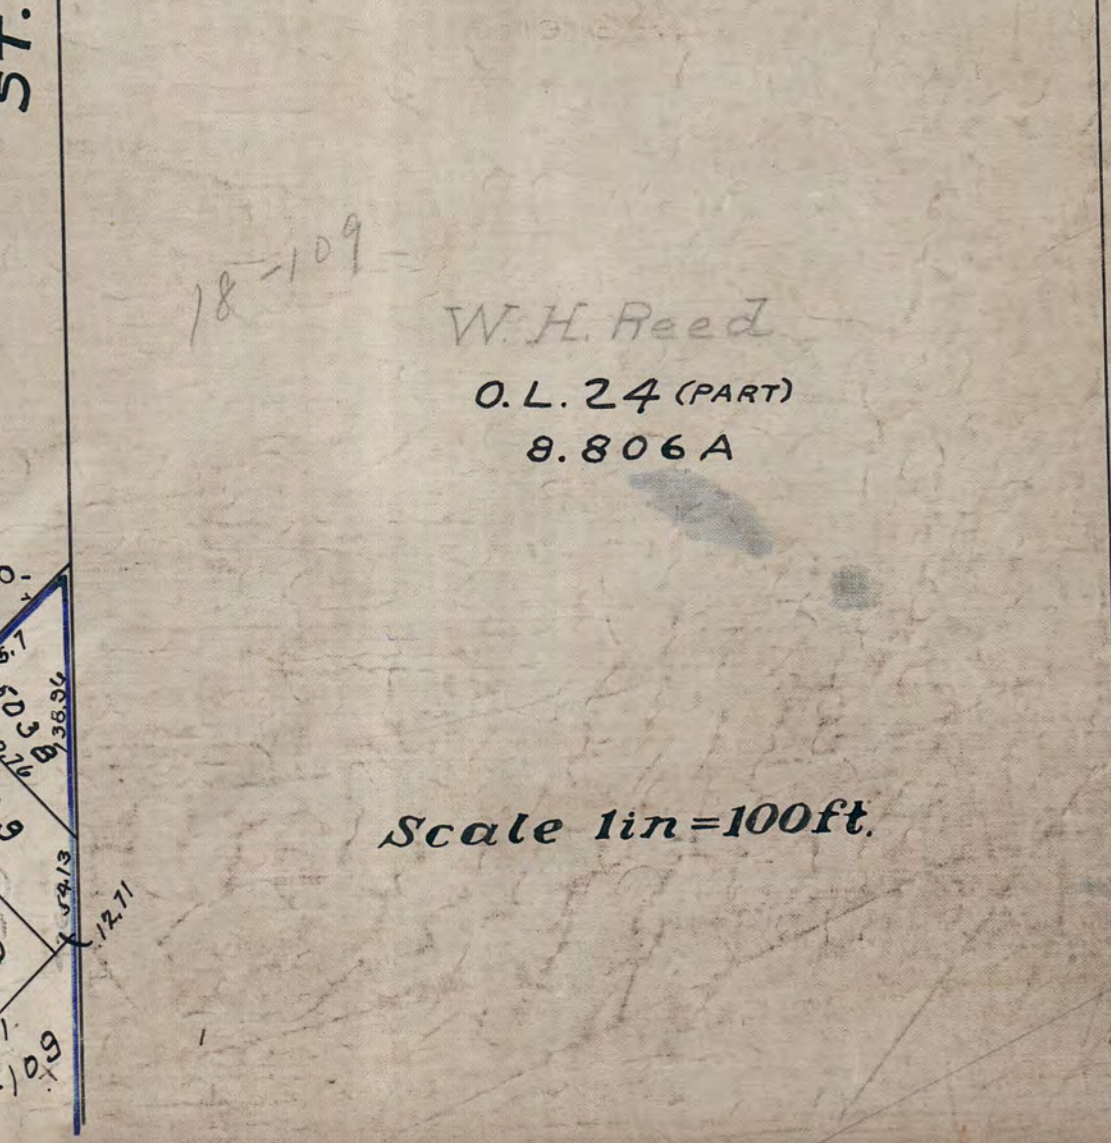 ST.
18-109
W. H. Reed
O. L. 24 (PART)
8.806 A
138.96
Scale 1in=100ft.
54.13
12.71
109